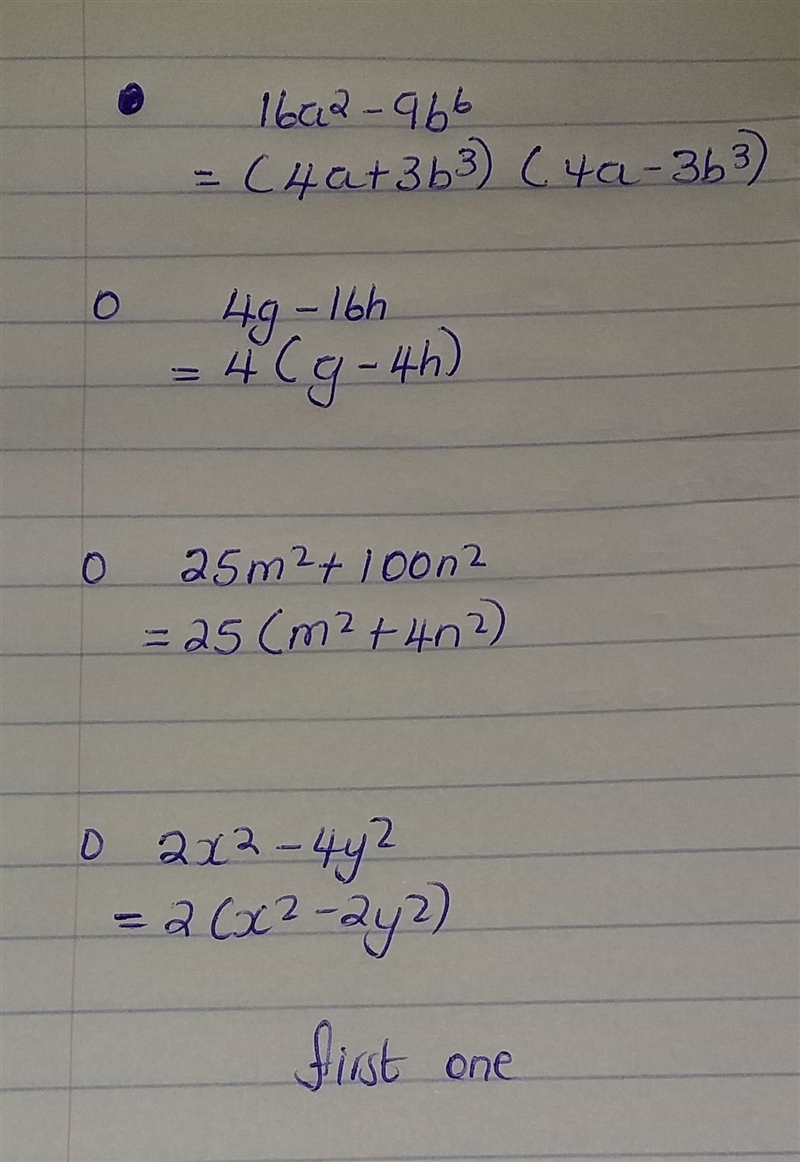 ● 16a² - 9b⁶
= (4a+3b³) (4a-3b³)
O 4g - 16h
= 4(g - 4h)
O 25m² + 100n²
= 25(m² + 4n²)
O 2x² - 4y²
= 2(x² - 2y²)
first one